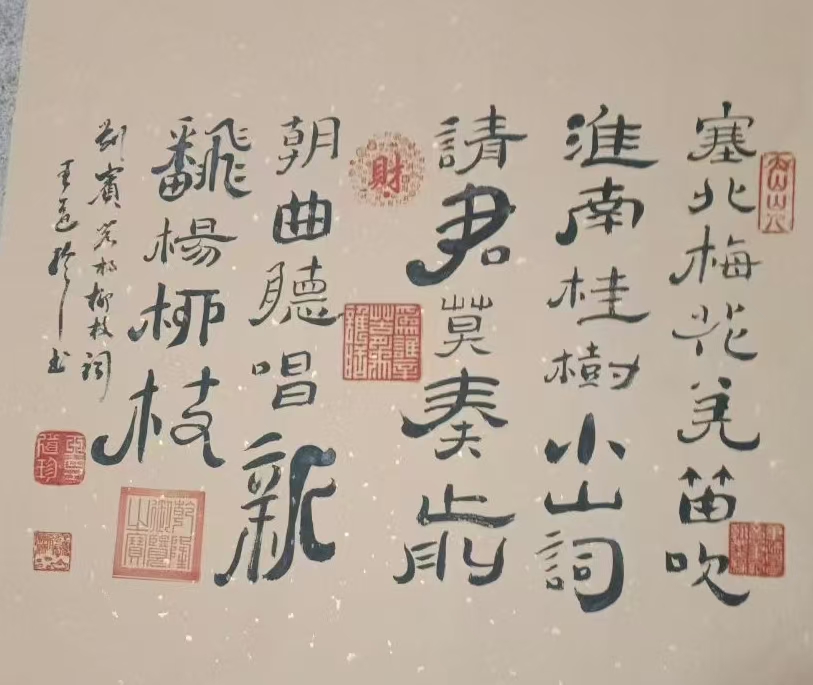 塞北梅花羌笛吹
淮南桂樹小山詞
請君莫奏前
朝曲聽唱新
飜楊柳枝
劉賓客楊柳枝詞
書
財
乾隆御覽之寶